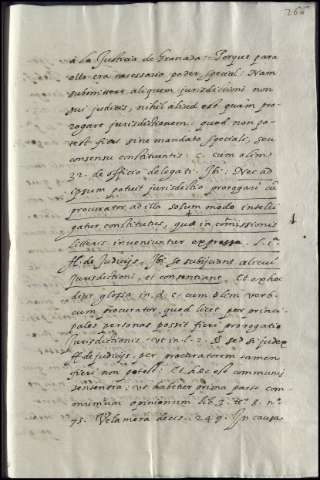 266
à la Justicia de Granada: Porque para
ello era necessario poder special: Nam
submittere aliquem jurisdictioni non
sui judicis, nihil aliud est quàm pro-
rogare jurisdictionem: quod non po-
test fieri sine mandato speciali, seu
consensu constituentis: c. cum olim
32. de officio delegati. Ibi: Nec ad
ipsum potuit jurisdictio prorogari cũ
procurator ad illa solum modo intelli
gatur constitutus, quæ in com̃issionis
litteris inveniuntur expressa. L. 1.ª
ff. de Judicijs, Ibi, se subijciant alicui
jurisdictioni, et consentiant. Et ex hoc
glosa in d. c. cum olim verb.
cum procurator, quod licet per princi-
pales personas possit fieri prorogatio
jurisdictionis, ut in l. 2. § sed si judex
ff. de judicijs, per procuratorem tamen
fieri non potest: Et est communis
sententia, ut habetur prima parte com-
munium opinionum lib. 3. tt.º 8. nº
75. Vela mora decis. 249. In causa